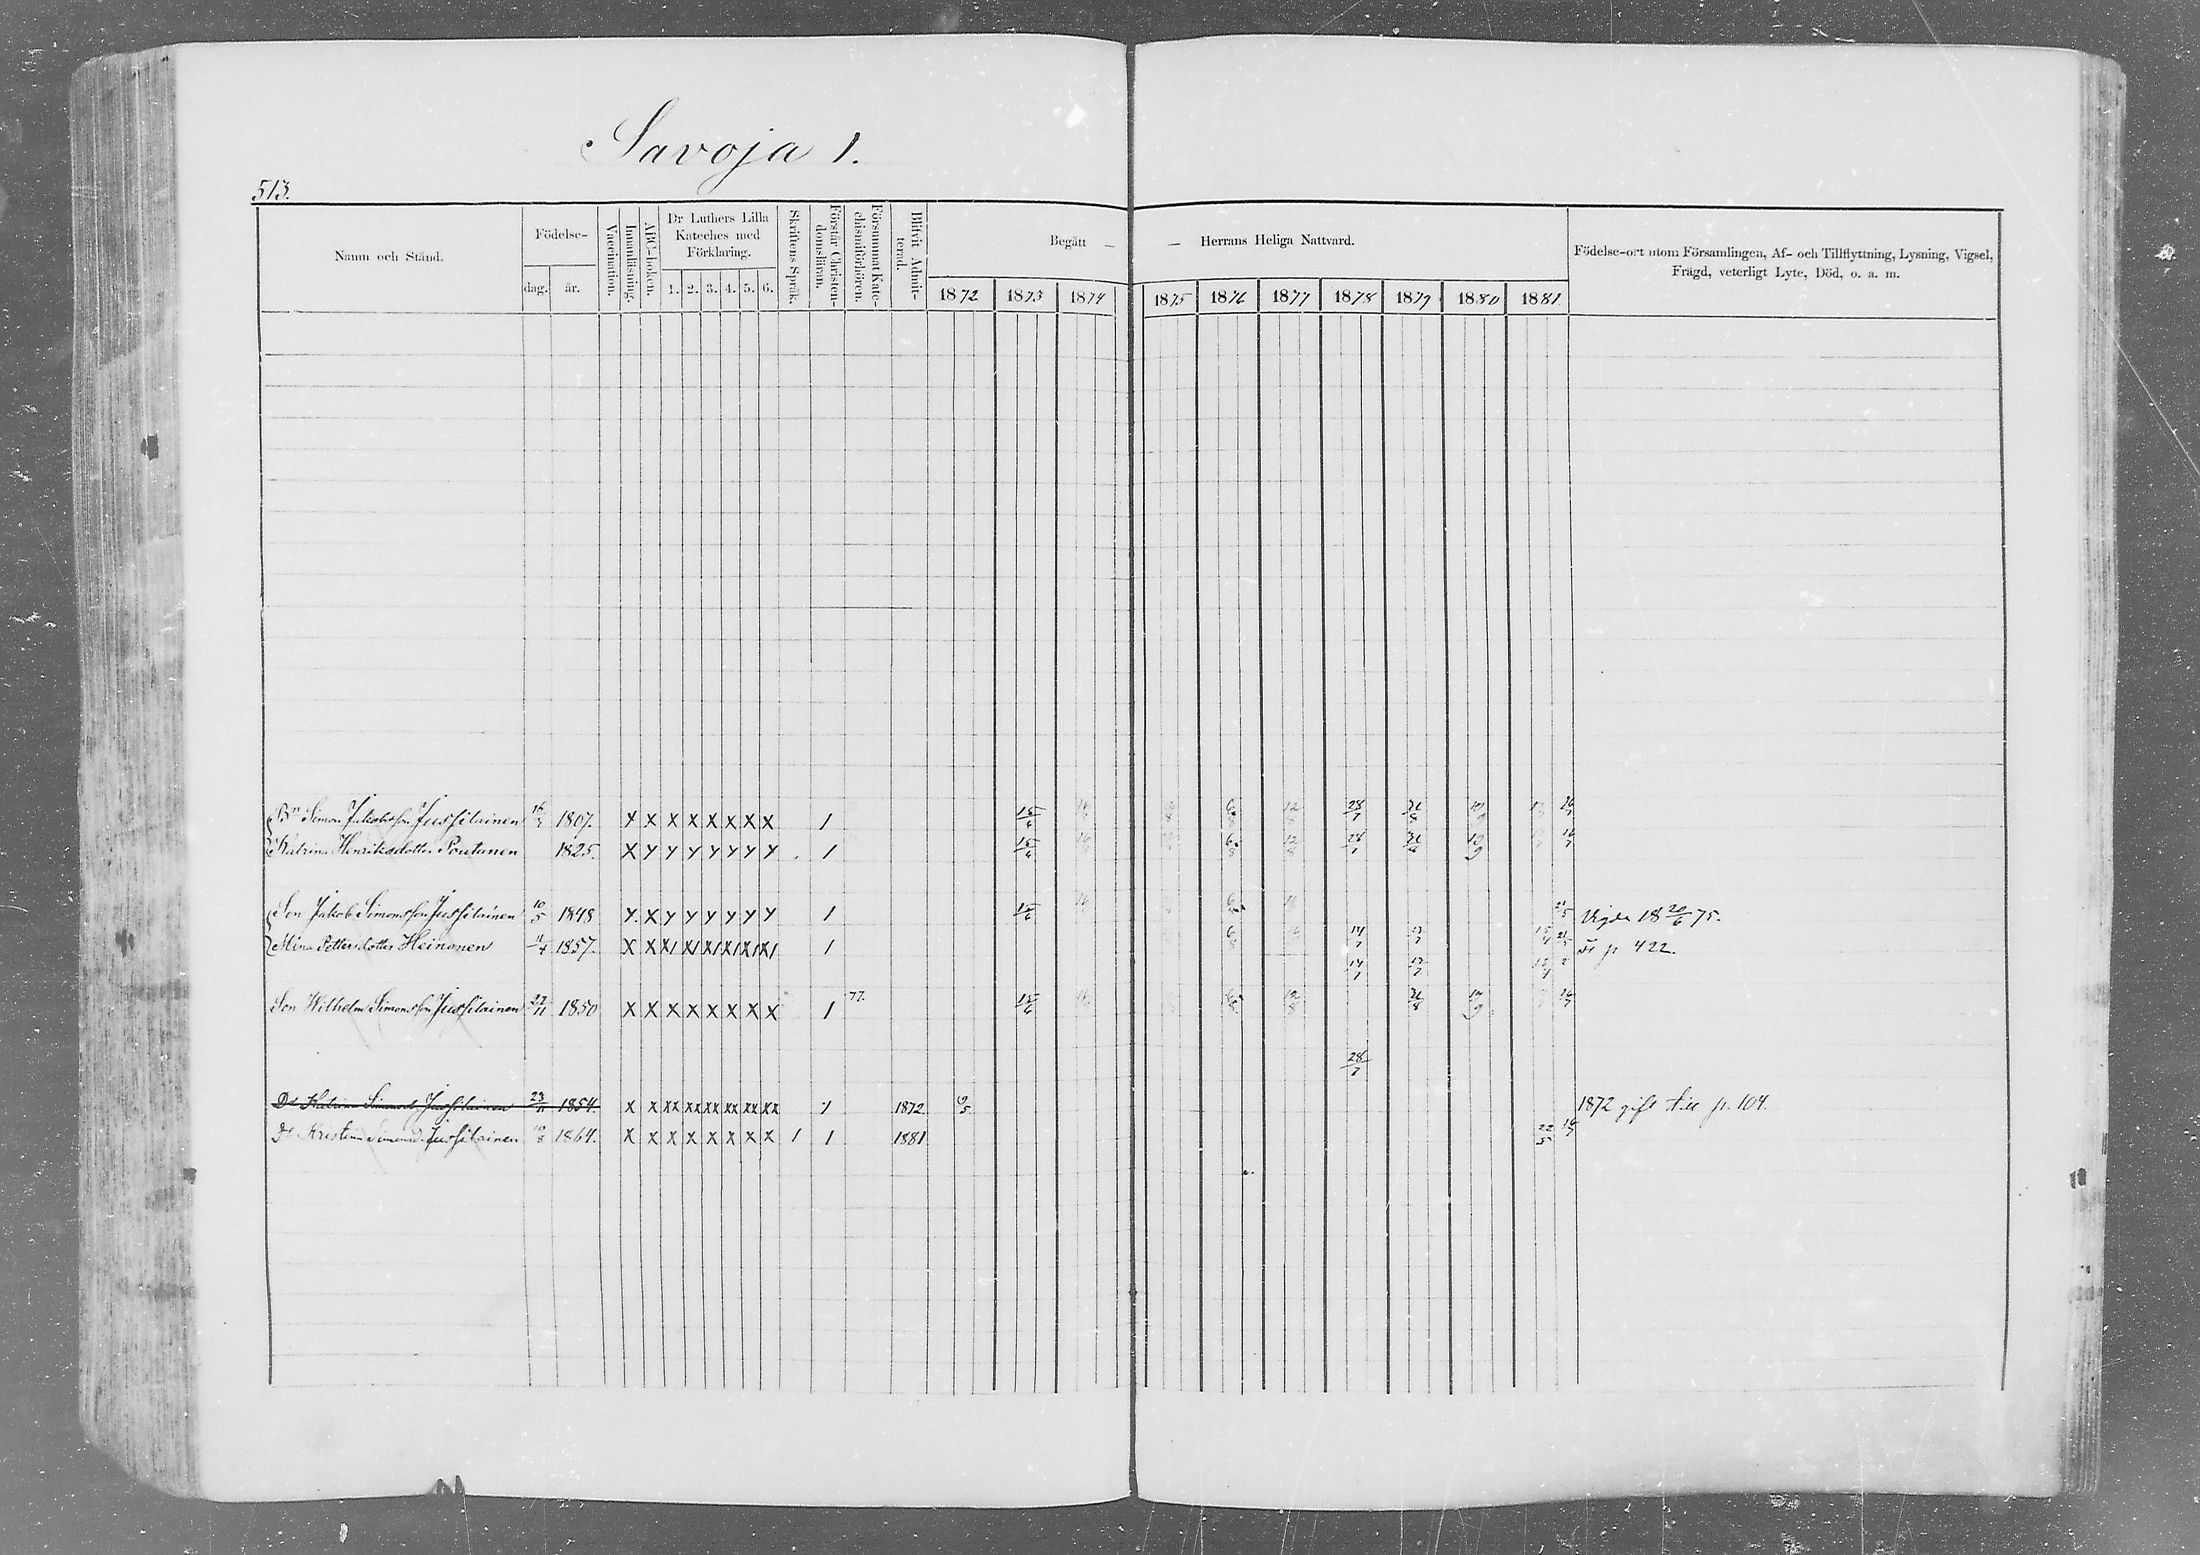 Savoja 1.
513.
Namn och Stånd.
Födelse-
dag. år.
Vaccination.
Innanläsning.
ABC-boken.
Dr Luthers Lilla
Kateches med
Förklaring.
1. 2. 3. 4. 5. 6.
Skriftens Språk.
Förstår Christen-
domsläran.
Försummat Kate-
chismiförhören.
Blifvit Admit-
terad.
Begått — — Herrans Heliga Nattvard.
1872 1873 1874 1875 1876 1877 1878 1879 1880 1881
Födelse-ort utom Församlingen, Af- och Tillflyttning, Lysning, Vigsel,
Frägd, veterligt Lyte, Död, o. a. m.
Bn Simon Jakobsson Jussilainen 1807. X X X X X X X X 1 15/6 6/8 12/8 28/7 31/8
Katrina Henriksdotter Poutanen 1825. X Y Y Y Y Y Y Y 1 15/6 6/8 12/8 28/7 31/8 19/9
Son Jakob Simonsson Jussilainen 10/5 1848 Y X Y Y Y Y Y Y 1 15/6 Vigde 18 20/6 75.
Mina Pettersdotter Heinonen 11/4 1857. X X X X X X X X 1 6/8 14/7 fr p 422.
14/7
Son Wilhelm Simonsson Jussilainen 27/11 1850 X X X X X X X X 1 77. 15/6 6/8 12/8 31/8 19/9
28/7
Dr Katrina Simonsd. Jussilainen 23/11 1854. X X XX XX XX XX XX XX 1 1872 9/5 1872 gift till p. 104.
Dr Kristina Simonsd. Jussilainen 1864. X X X X X X X X 1 1 1881 22/5